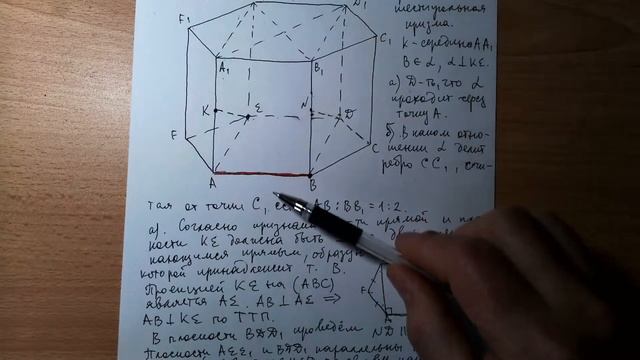 F₁
D₁
A₁
B₁
C₁
K
E
N
D
F
C
A
B
призма.
K - середина AA₁
B ∈ α, α ⊥ KE.
а) Д-ть, что α
проходит через
точку A.
б) В каком отно-
шении α делит
ребро CC₁, счи-
тая от точки C₁, если AB : BB₁ = 1 : 2
а). Согласно прямой и
ности KE должна быть
прямым,
которой принадлежит т. B.
Проекцией KE на (ABC)
является AE. AB ⊥ AE ⇒
AB ⊥ KE по ТТП.
В плоскости BDD₁ проведём ND ||
Плоскости AEE₁ и BDD₁ параллельны